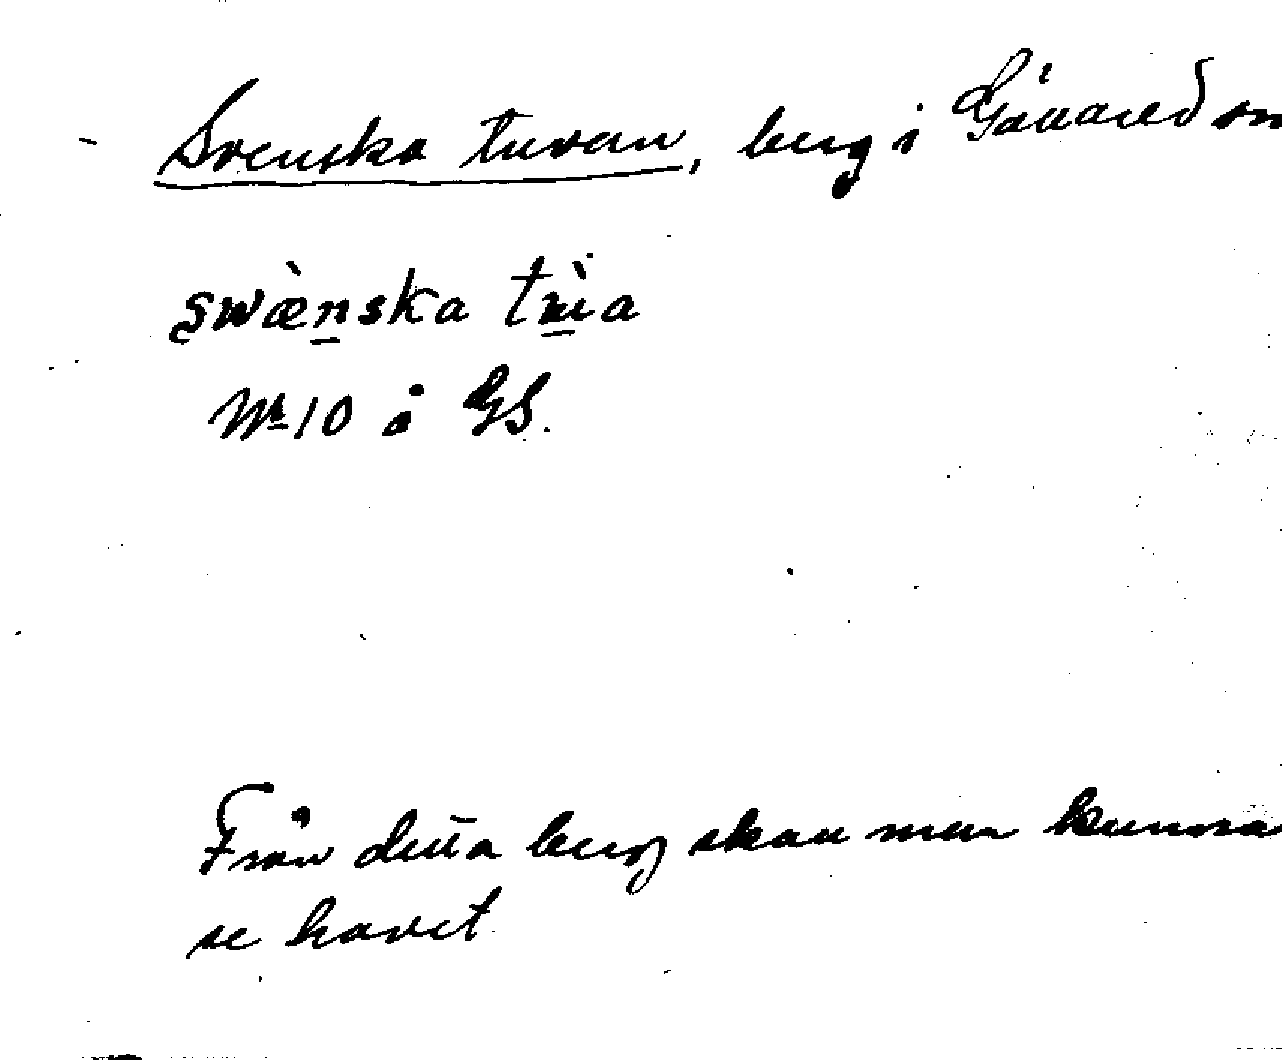 Svenska tuvan, berg i Gåvared sn
swæ̀nska tùa
Nr 10 å GS.
Från detta berg skall man kunna
se havet